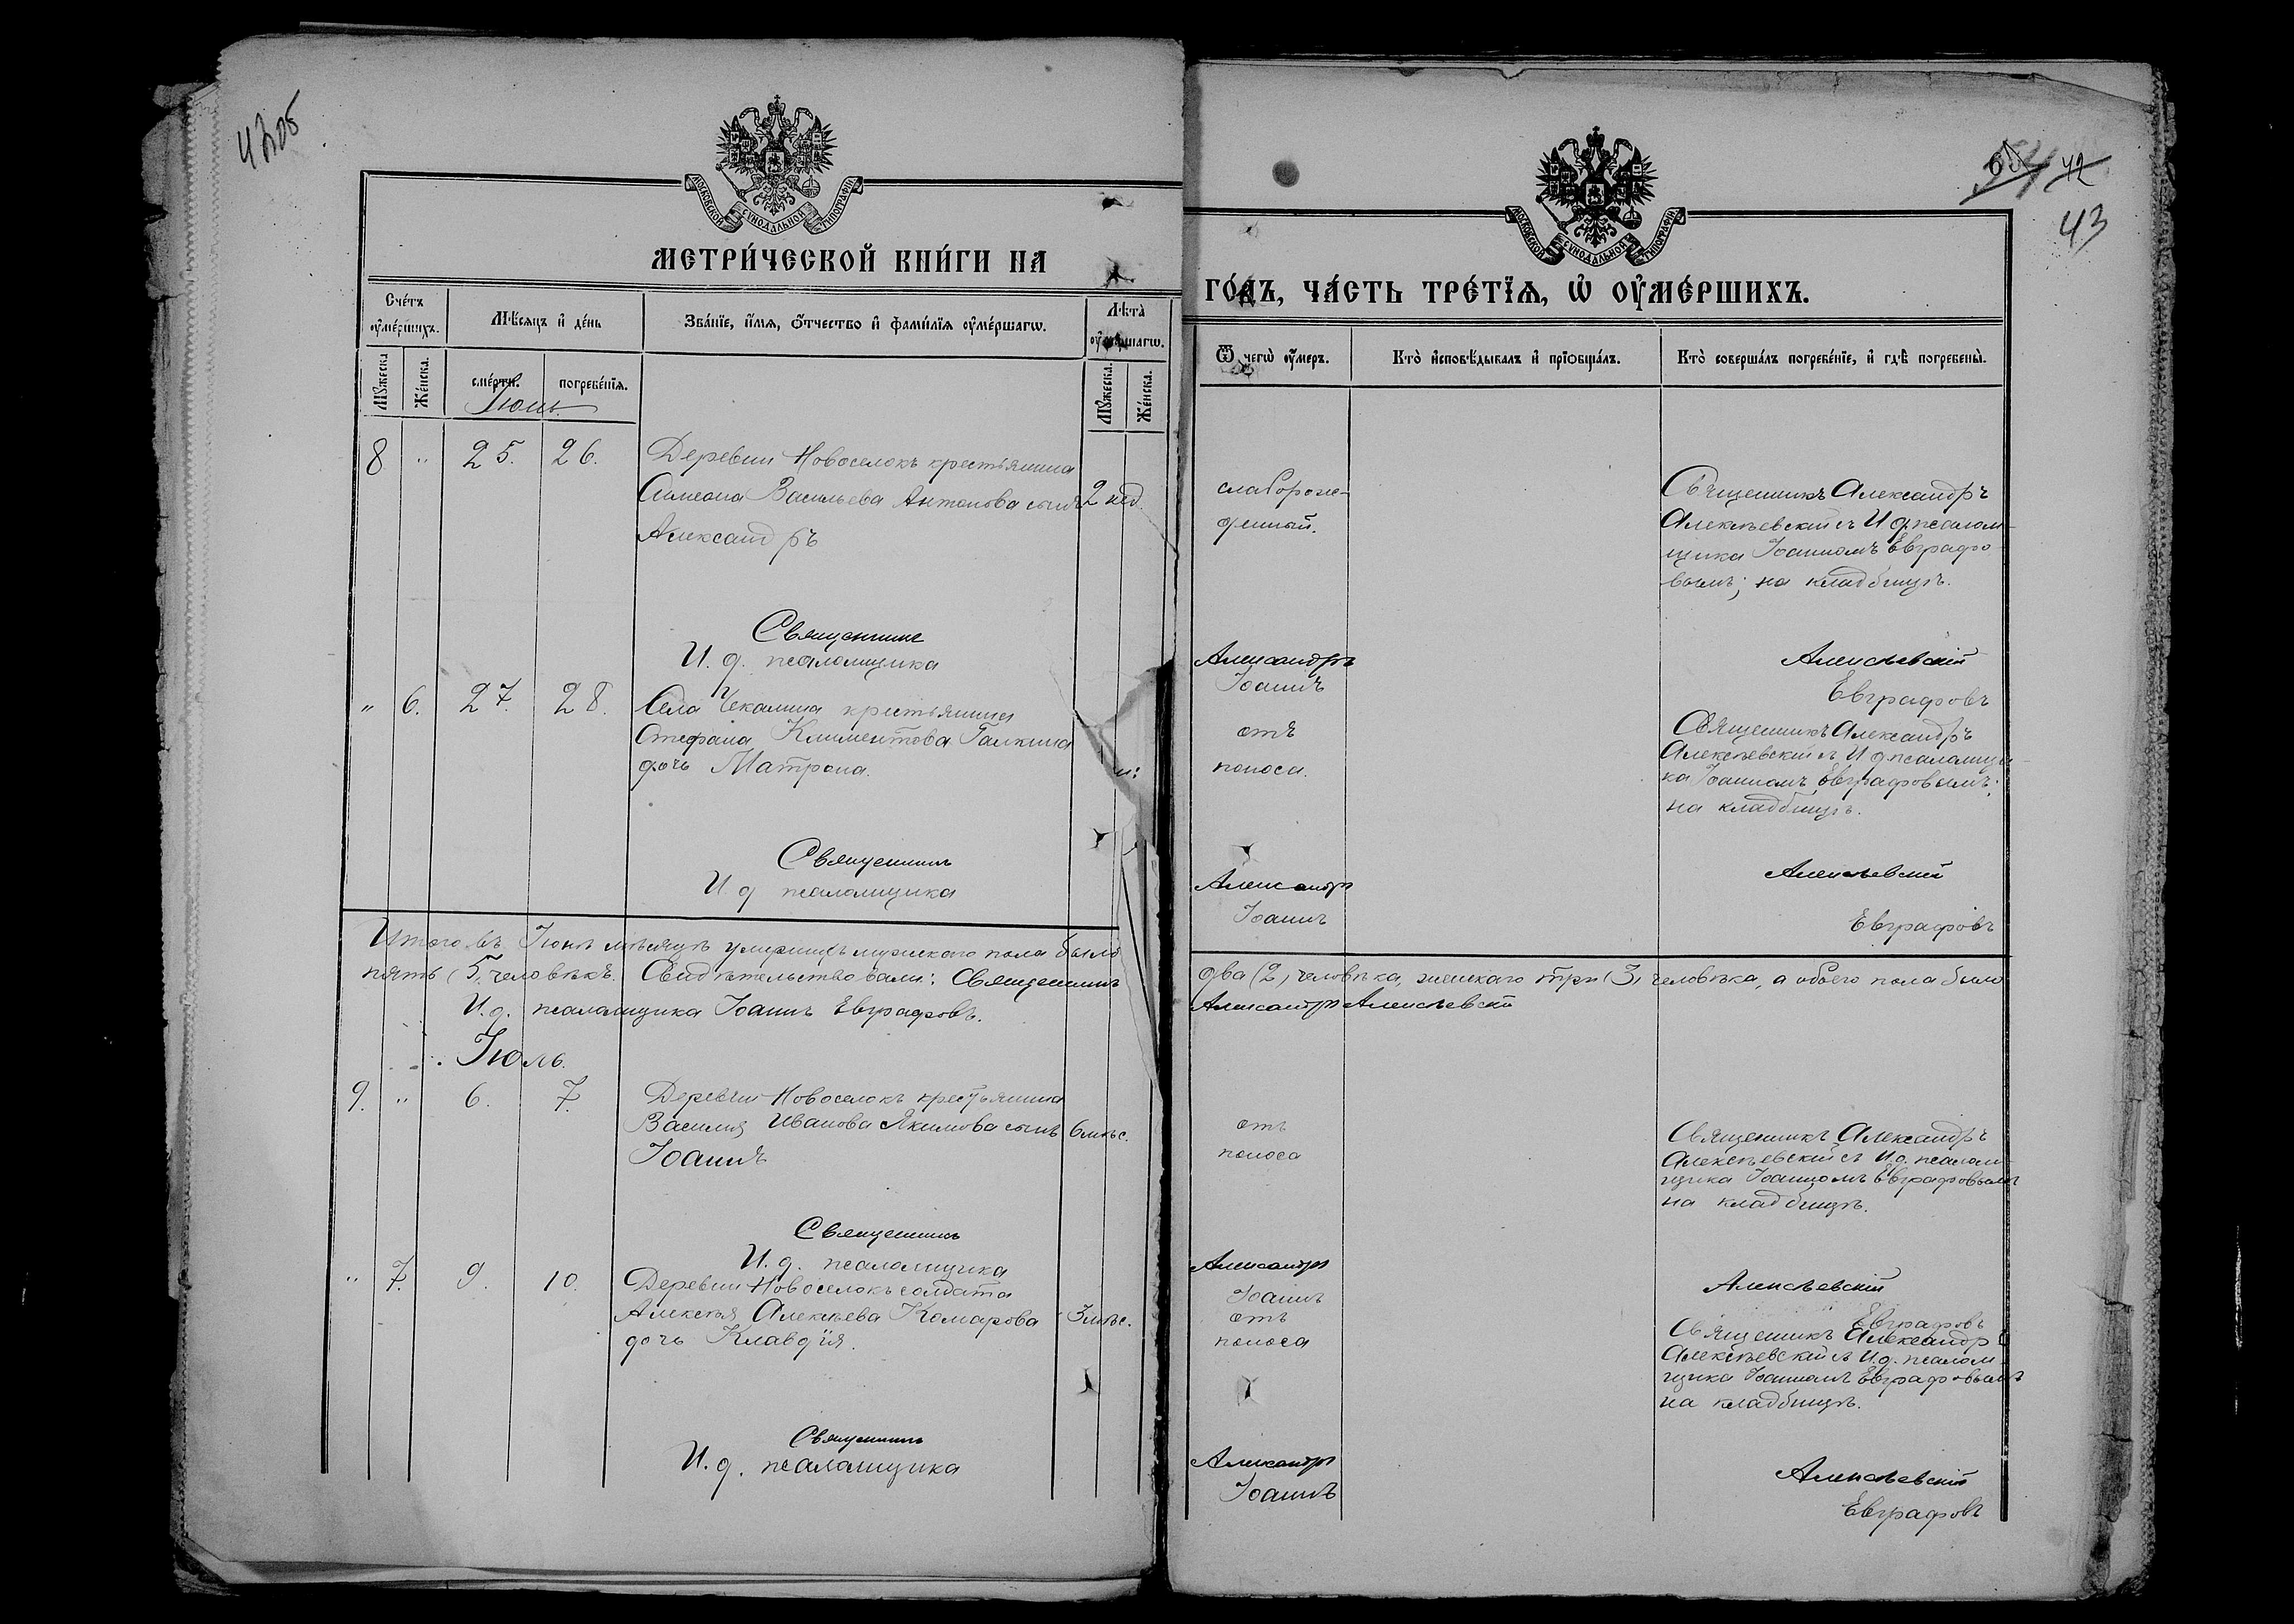 42об
МОСКОВСКОЙ СУНОДАЛЬНОЙ ТИПОГРАФІИ
МЕТРИ́ЧЕСКОЙ КНИ́ГИ НА
Сче́тъ оумéршихъ.
Мѣ́сяцъ и де́нь
Зва́нїе, и́мя, о́тчество и фами́лїя оуме́ршагѡ.
Лѣта̀
Мꙋ́жеска
Же́нска.
сме́рти.
погребе́нїя.
Мꙋ́жеска.
Же́нска.
Іюнь.
8 " 25. 26. Деревни Новоселокъ крестьянина
Симеона Васильева Антонова сынъ 2 нед.
Александръ
Священникъ
И. д. псаломщика
" 6. 27. 28. Села Чекалина крестьянина
Стефана Климентова Галкина
дочь Матрона.
Священникъ
И. д. псаломщика
Итого въ Іюнѣ мѣсяцѣ умершихъ мужескаго пола было
пять (5) человѣкъ. Свидѣтельствовали: Священникъ
И. д. псаломщика Іоаннъ Евграфовъ.
Іюль.
9. " 6. 7. Деревни Новоселокъ крестьянина
Василія Иванова Якимова сынъ 6 мѣс.
Іоаннъ
Священникъ
И. д. псаломщика
" 7. 9. 10. Деревни Новоселокъ солдата
Алексѣя Алексѣева Комарова 3 мѣс.
дочь Клавдія.
Священникъ
И. д. псаломщика
42
43
МОСКОВСКОЙ СУНОДАЛЬНОЙ ТИПОГРАФІИ
ГО́ДЪ, ЧА́СТЬ ТРЕ́ТЇЯ, Ѡ ОУМЕ́РШИХЪ.
Ѿ чегѡ̀ оу́меръ.
Кто̀ исповѣ́дывалъ и прїобща́лъ.
Кто̀ соверша́лъ погребе́нїе, и гдѣ̀ погребены̀.
слаборож-
денный.
Священникъ Александръ
Алексѣевскій съ И. д. псалом-
щика Іоанномъ Евграфо-
вымъ; на кладбищѣ.
Александръ Алексѣевскій
Іоаннъ Евграфовъ
отъ
поноса.
Священникъ Александръ
Алексѣевскій съ И. д. псаломщи-
ка Іоанномъ Евграфовымъ;
на кладбищѣ.
Александръ Алексѣевскій
Іоаннъ Евграфовъ
два (2) человѣка, женскаго три (3) человѣка, а обоего пола было
Александръ Алексѣевскій
отъ
поноса
Священникъ Александръ
Алексѣевскій съ И. д. псалом-
щика Іоанномъ Евграфовымъ
на кладбищѣ.
Александръ Алексѣевскій
Іоаннъ Евграфовъ
отъ
поноса
Священникъ Александръ
Алексѣевскій съ И. д. псалом-
щика Іоанномъ Евграфовымъ
на кладбищѣ.
Александръ Алексѣевскій
Іоаннъ Евграфовъ